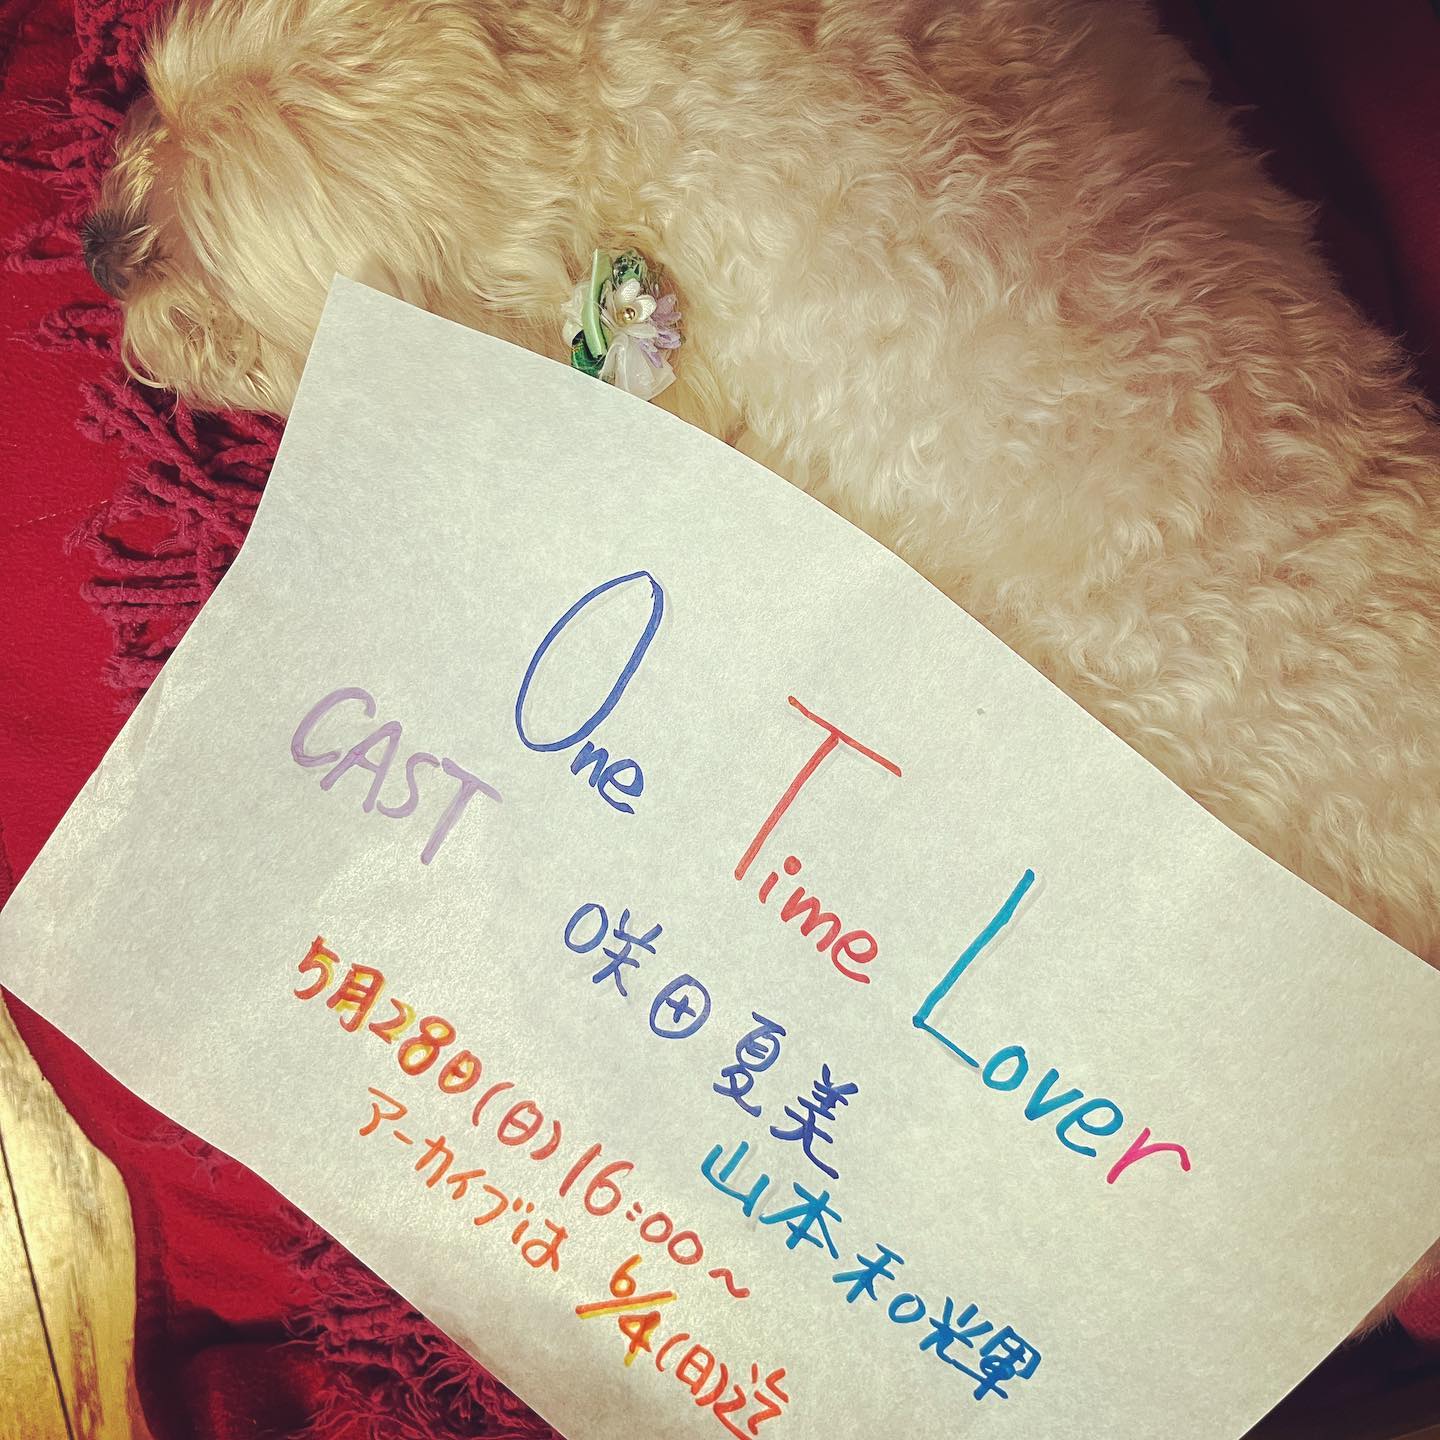 One Time Lover
CAST
咲田夏美
山本和輝
5月28日(日)16:00~
アーカイブは 6/4(日)迄